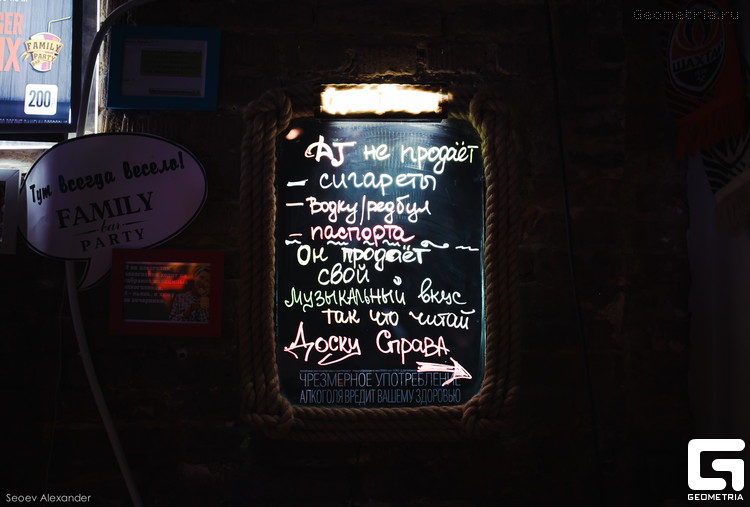 Geometria.ru
FAMILY
PARTY
200
ШАХТАР
Тут всегда весело!
FAMILY
bar
PARTY
DJ не продаёт
– сигареты
– Водку/редбул
– паспорта
Он продаёт
свой
Музыкальный вкус
так что читай
Доску Справа
ЧРЕЗМЕРНОЕ УПОТРЕБЛЕНИЕ
АЛКОГОЛЯ ВРЕДИТ ВАШЕМУ ЗДОРОВЬЮ
Seoev Alexander
GEOMETRIA